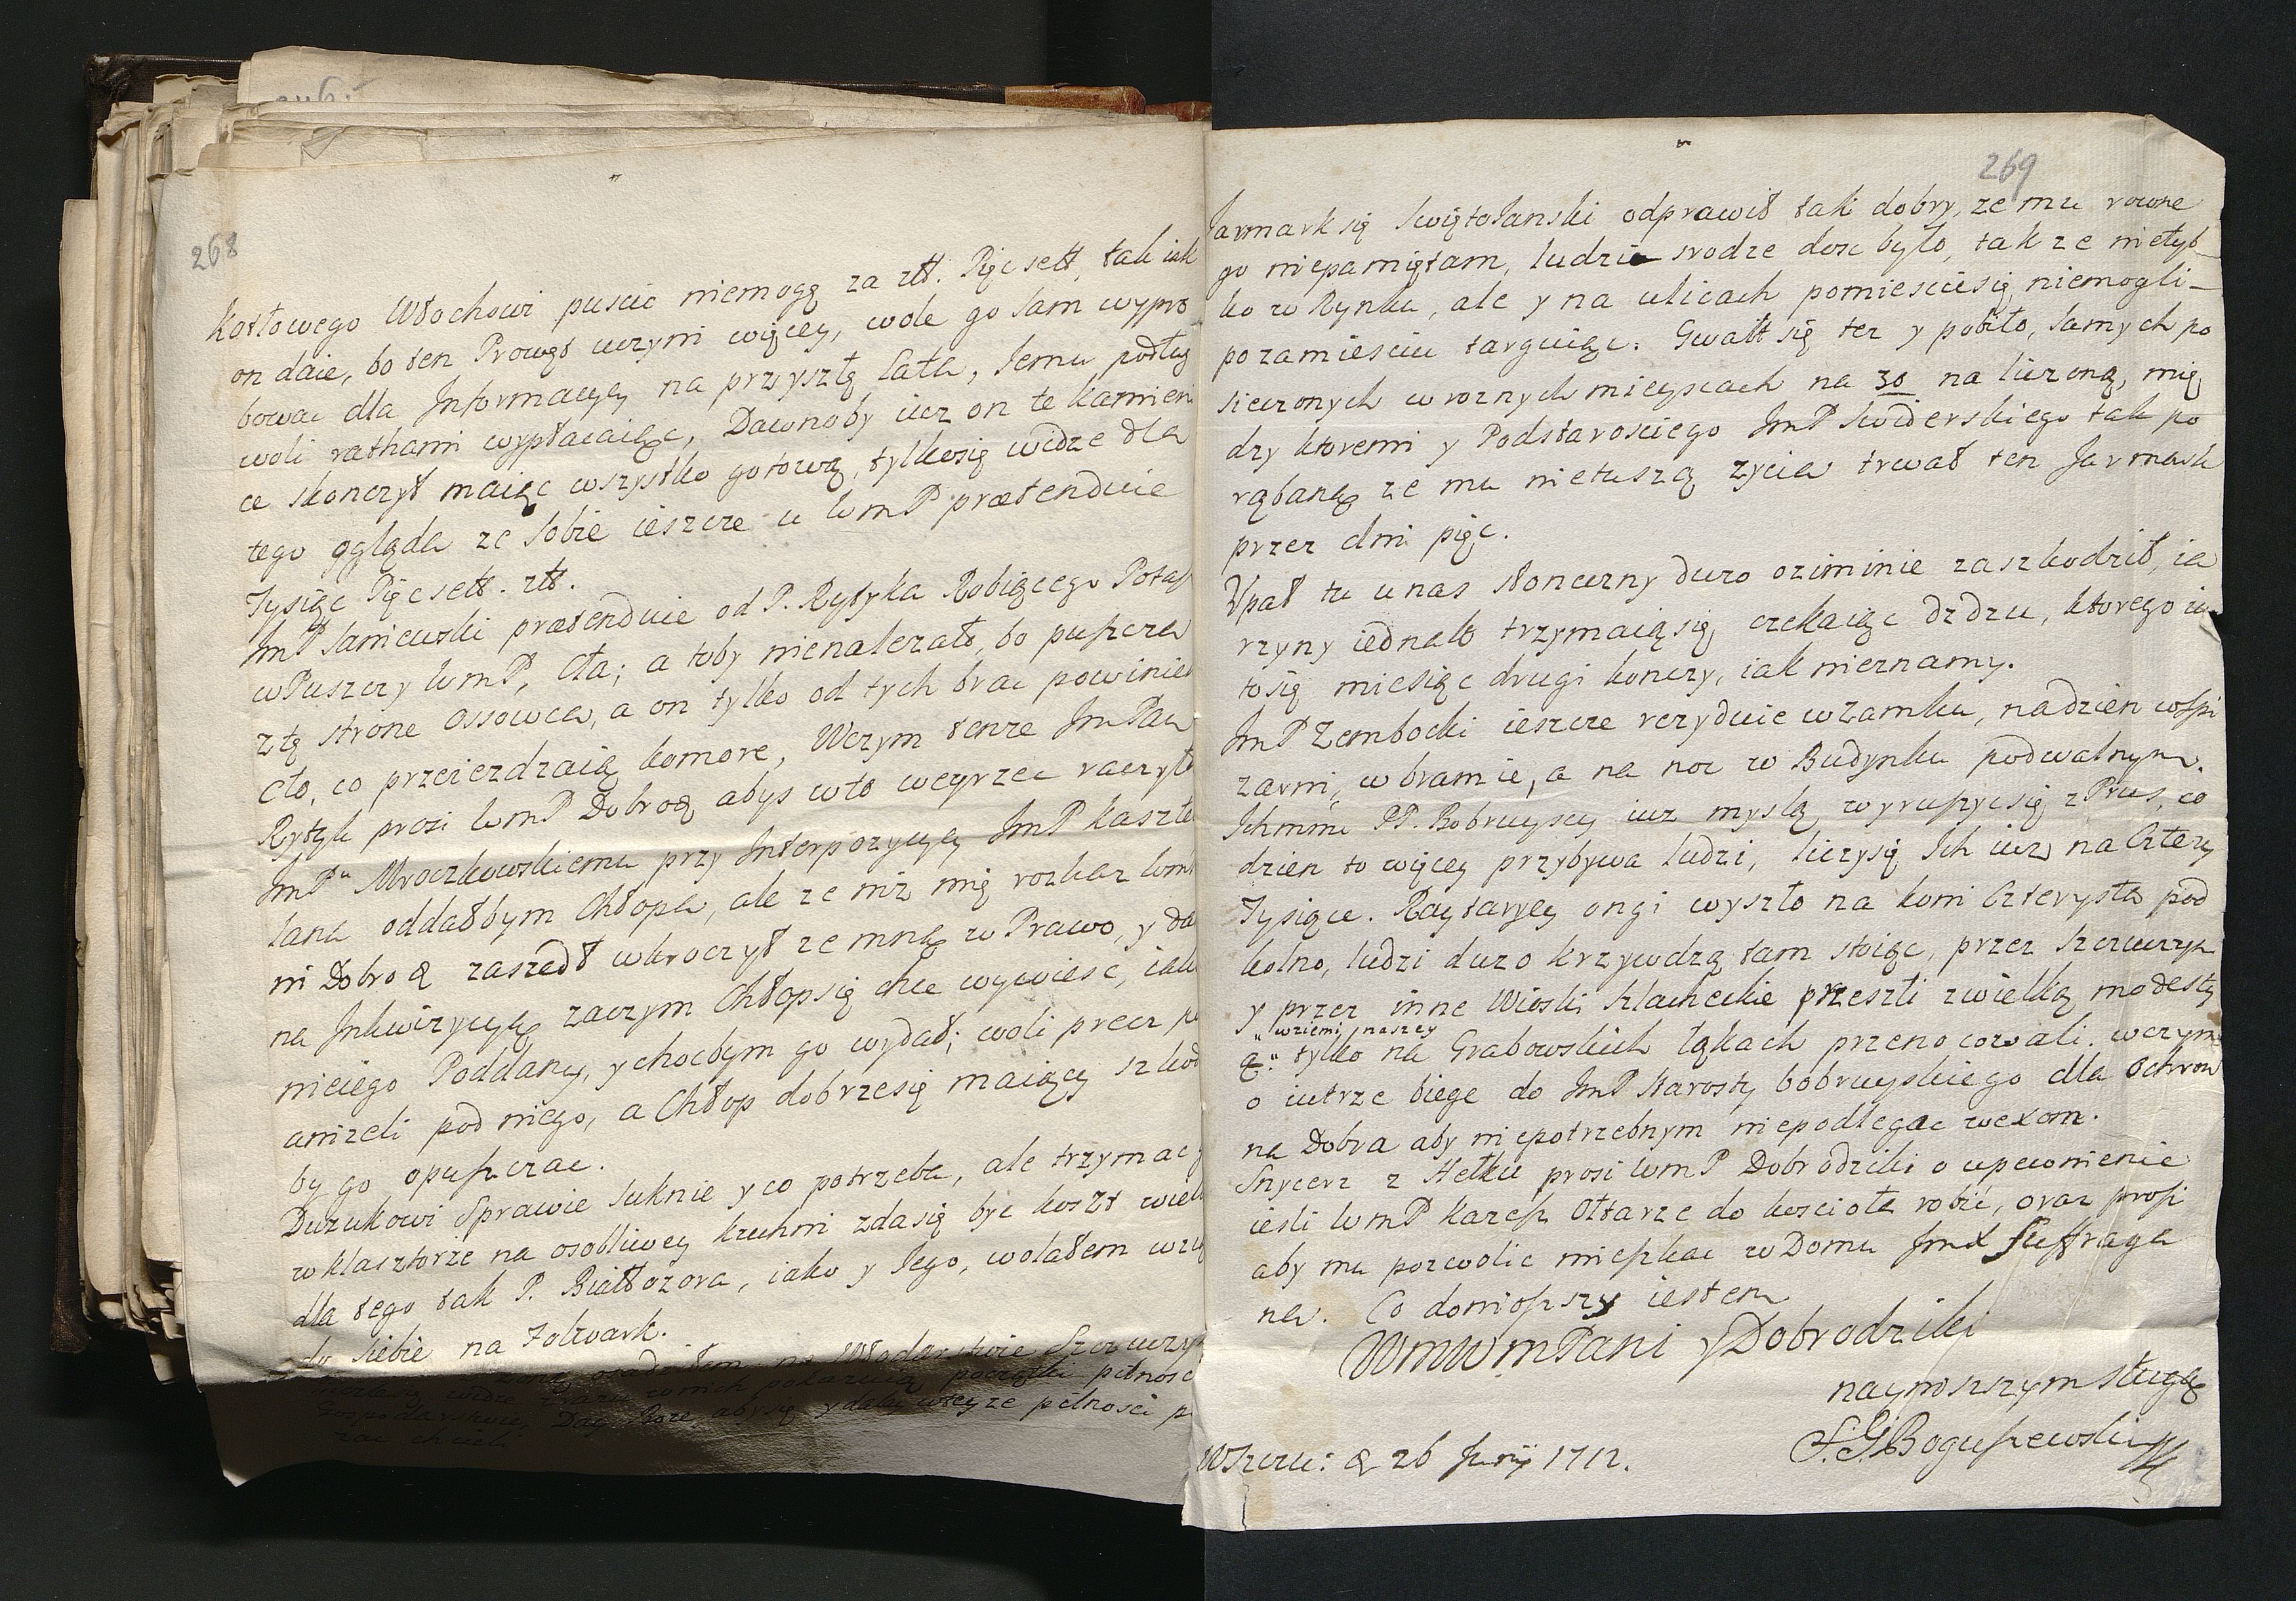 268
kotłowego Włochowi puscic niemogę za złł. Pięcsett, tak iak
on daie, bo ten Prowęt uczyni więcey, wole go sam wypro
bowac dla Informacyey na przyszłą lata, Jemu podług
woli rathami wypłacaiąc, Dawnoby iuz on te kamieni
ce skonczył maiąc wszystko gotową, tylkosię widze dla
tego ogląda ze sobie ieszcze u WmP prætenduie
Tysiąc Pięcsett. złł.
JmP Janiewski prætenduie od P. Rytyka Robiącego Potasz
wPuszczy WmP, Cła; a toby nienalezało, bo puszcza
ztą strone Ossowca, a on tylko od tych brac powinien
cło, co przeiezdzaią komore, Wczym tenze JmPan
Rytyk prosi WmP Dobrą abys wto weyrzec raczyła
JmPu Mroczkowskiemu przy Interpozycyey JmP Kaszte
lana oddałbym Chłopa, ale ze niz mię rozkaz Wm
ni Dobro& zaszedł wkroczył ze mną w Prawo, y da
na Inkwizycyą zaczym Chłopsię chce wywiesc, iako
nieiego Poddany, ychocbym go wydał; woli precz po
anizeli pod niego, a Chłop dobrzesię maiący szkod
by go opuszczac.
Duzukowi Sprawie suknie yco potrzeba, ale trzymac
w klasztorze na osobliwey kuchni zdasię byc koszt wiel
dla tego tak P. Białłozora, iako y Jego, wolałem wzią
do siebie na Folwark.
osadziłem na Włodarstwie Szczuczyn
widze zaraz wnich pokazuią początki pilnosc
Gospodarstwie, Day Boze abysię ydaley wteyze pilnosci p
zac chcieli
269
Jarmark się Swiętoianski odprawił tak dobry, ze mu rowne
go niepamiętam, ludzie srodze dosc było, tak ze nietyl
ko w Rynku, ale y na ulicach pomiescicsię niemogli
pozamiesciu targuiąc. Gwałt się tez y pobiło, samych po
sieczonych w roznych mieyscach na 30 naliczoną, mię
dzy ktoremi y Podstarosciego JmP Swiderskiego tak po
rąbaną ze mu nietuszą zycia trwał ten Jarmark
przez dni pięc.
Upał tu unas słoneczny duzo oziminie zaszkodził, ia
rzyny iednak trzymaiąsię, czekaiąc dzdzu, ktorego iu
tosię miesiąc drugi konczy, iak nieznamy.
JmP Zembocki ieszcze rezyduie wzamku, nadzien wspi
zarni, w bramie, a na noc w Budynku podwalnym.
Ichmm PP. Bobruyscy iuz myslą wyruszycsię z Prus, co
dzien to więcey przybywa ludzi, liczysię Ich iuz na Cztery
Tysiące. Raytaryey ongi wyszło na koni Czterysta pod
kolno, ludzi duzo krzywdzą tam stoiąc, przez Szczuczyn
y przez inne Wioski szlacheckie przeszli zwielką modesty
" wziemi naszey
ą " tylko na Grabowskich łąkach przenocowali. wczym
o iutrze biege do JmP Starosty bobruyskiego dla Ochron
na Dobra aby niepotrzebnym niepodlegac wexom.
Snycerz z Hełku prosi WmP Dobrodziki o upewnienie
iesli WmP kazesz Ołtarze do koscioła robic, oraz prosi
aby mu pozwolic mieszkac w Domu JmX Suffraga
na. Co doniosszy iestem
WmWmPani y Dobrodziki
naynizszym sługą
S. G. Boguszewski
WSzczu: & 26 Junij 1712.